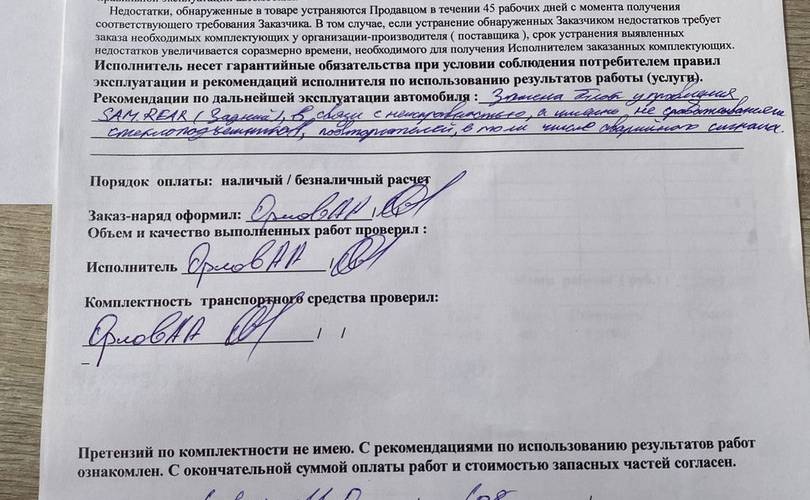 Недостатки, обнаруженные в товаре устраняются Продавцом в течении 45 рабочих дней с момента получения
соответствующего требования Заказчика. В том случае, если устранение обнаруженных Заказчиком недостатков требует
заказа необходимых комплектующих у организации-производителя ( поставщика ), срок устранения выявленных
недостатков увеличивается соразмерно времени, необходимого для получения Исполнителем заказанных комплектующих.
Исполнитель несет гарантийные обязательства при условии соблюдения потребителем правил
эксплуатации и рекомендаций исполнителя по использованию результатов работы (услуги).
Рекомендации по дальнейшей эксплуатации автомобиля : Замена блок управления
SAM REAR (Задний), в связи с неисправностью, а именно не срабатывание
стеклоподъемников, повторителей, в том числе аварийного сигнала.
Порядок оплаты: наличый / безналичный расчет
Заказ-наряд оформил: Орлов АА
Объем и качество выполненных работ проверил :
Исполнитель Орлов АА
Комплектность транспортного средства проверил:
Орлов АА
Претензий по комплектности не имею. С рекомендациями по использованию результатов работ
ознакомлен. С окончательной суммой оплаты работ и стоимостью запасных частей согласен.